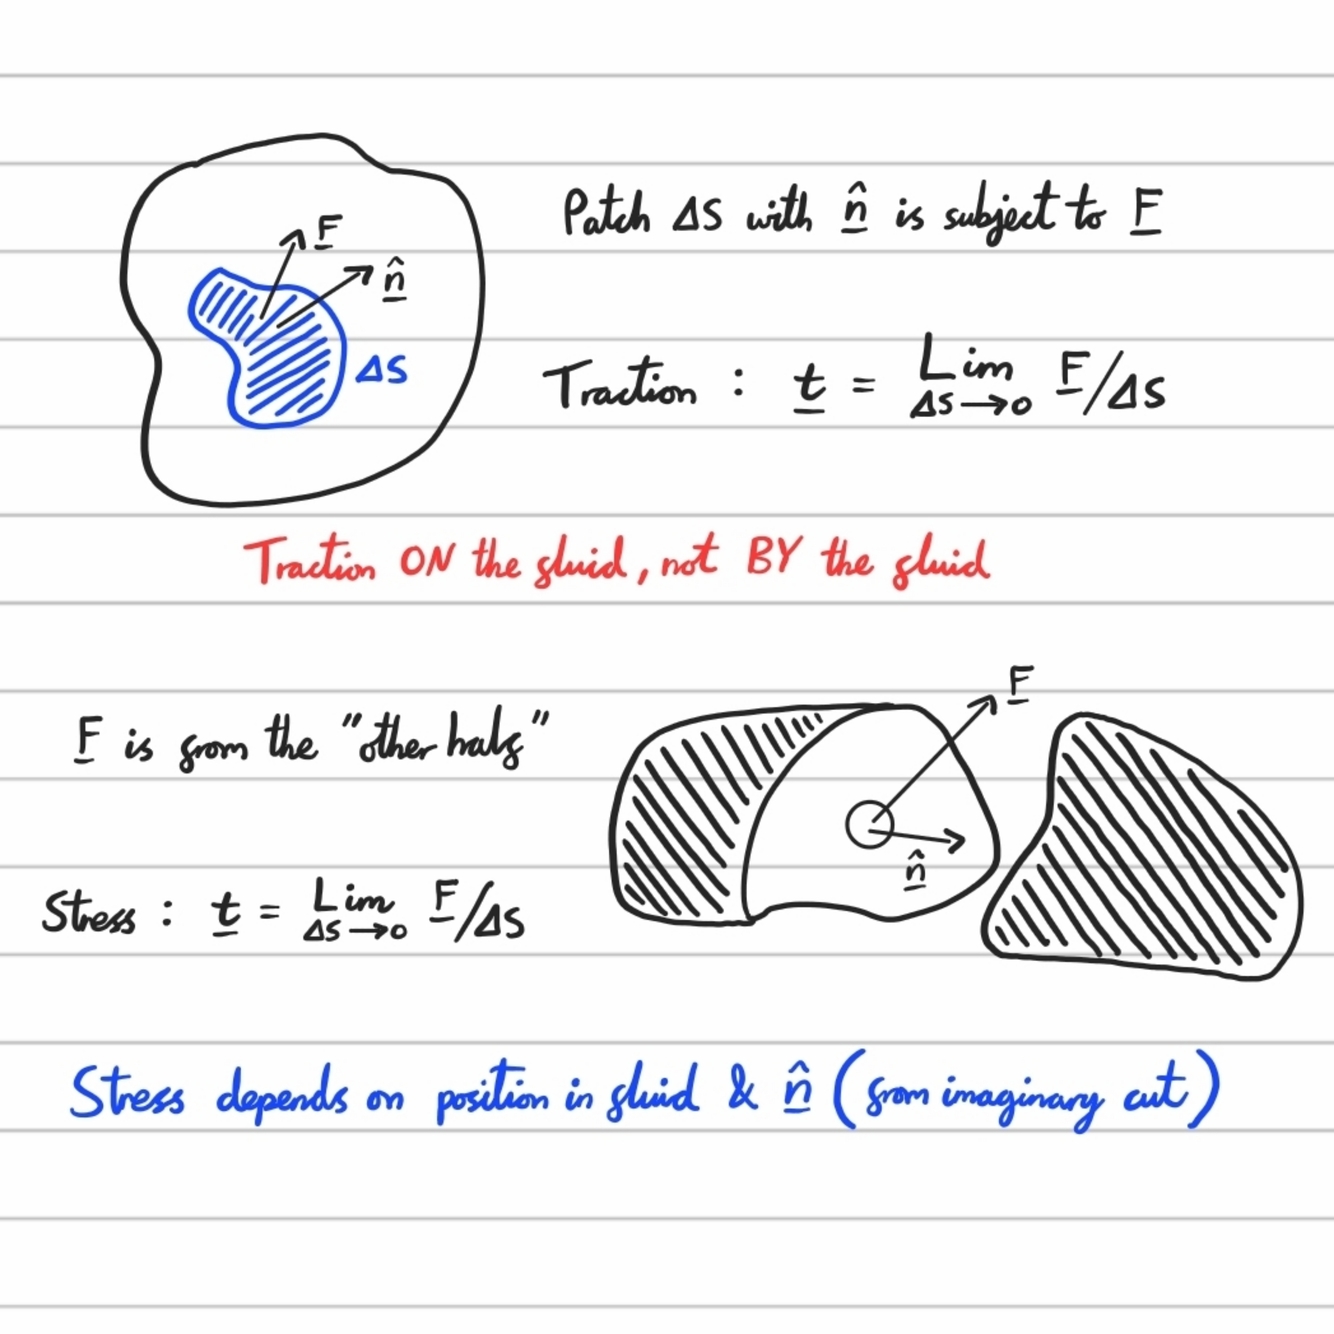 Patch ΔS with n̂ is subject to F
F
n̂
ΔS
Traction : t = Lim ΔS→0 F/ΔS
Traction ON the fluid, not BY the fluid
F
F is from the "other half"
n̂
Stress : t = Lim ΔS→0 F/ΔS
Stress depends on position in fluid & n̂ (from imaginary cut)